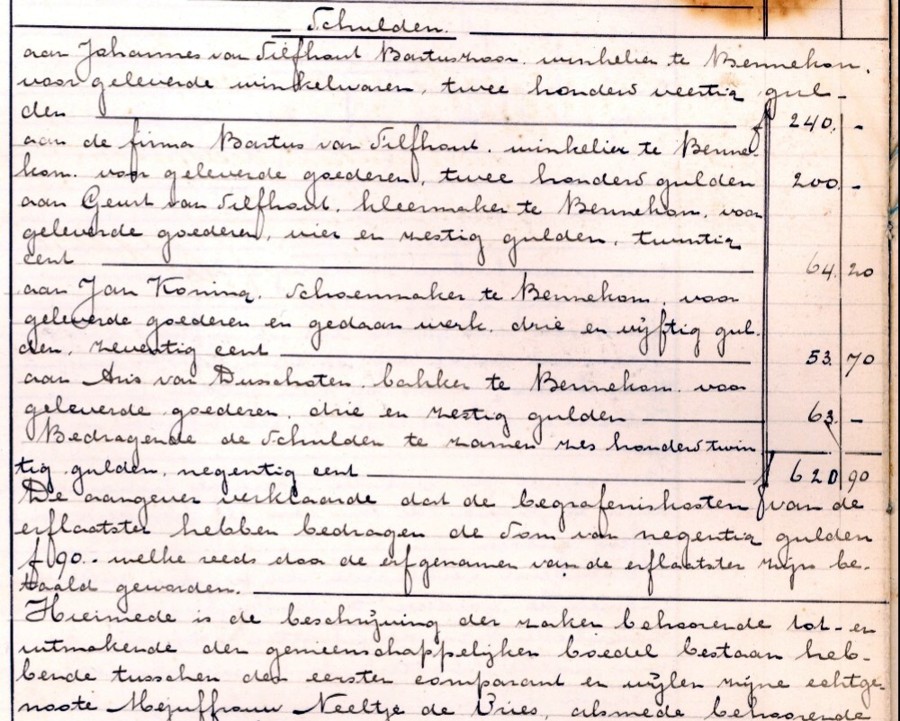 Schulden.
aan Johannes van Silfhout Bartuszoon. winkelier te Bennekom.
voor geleverde winkelwaren, twee honderd veertig gul-
den f 240. -
aan de firma Bartus van Silfhout. winkelier te Benne-
kom. voor geleverde goederen, twee honderd gulden 200. -
aan Geurt van Silfhout. kleermaker te Bennekom. voor
geleverde goederen, vier en zestig gulden, twintig
cent 64. 20
aan Jan Koning. Schoenmaker te Bennekom. voor
geleverde goederen en gedaan werk. drie en vijftig gul-
den, zeventig cent 53. 70
aan Aris van Dusschoten. bakker te Bennekom. voor
geleverde goederen, drie en zestig gulden 63. -
Bedragende de Schulden te zamen zes honderd twin
tig gulden, negentig cent f 620 90
De aangever verklaarde dat de begrafeniskosten van de
erflaatster hebben bedragen de som van negentig gulden
f 90.- welke reeds door de erfgenamen van de erflaatster zijn be-
taald geworden.
Hiermede is de beschrijving der zaken behoorende tot- en
uitmakende den gemeenschappelijken boedel bestaan heb-
bende tusschen den eersten comparant en wijlen zijne echtge-
noote Mejuffrouw Neeltje de Vries, alsmede behoorende